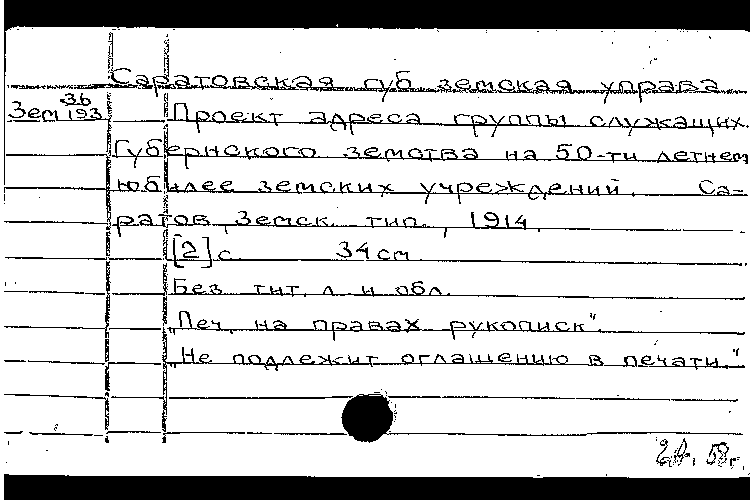 Саратовская губ земская управа
36
Зем 193
Проект адреса группы служащих
Губернского земства на 50-ти летнем
юбилее земских учреждений. Са-
ратов, Земск. тип., 1914.
[2] с. 34 см
Без тит. л. и обл.
„Печ. на правах рукописи".
„Не подлежит оглашению в печати."
58 г.